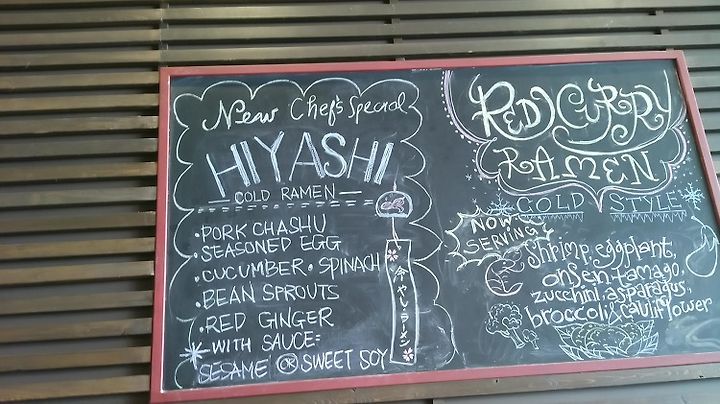 New Chef's Special
HIYASHI
COLD RAMEN
• PORK CHASHU
• SEASONED EGG
• CUCUMBER • SPINACH
• BEAN SPROUTS
• RED GINGER
WITH SAUCE:
SESAME OR SWEET SOY
冷やしラーメン
RED CURRY
RAMEN
COLD STYLE
NOW
SERVING
shrimp, eggplant,
onsen tamago,
zucchini, asparagus,
broccoli, cauliflower